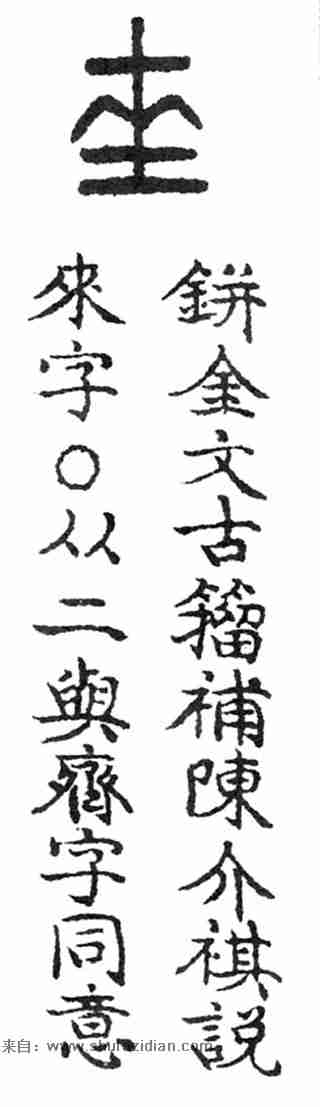 鉼金文古籀補陳介祺說
來字〇从二與齊字同意
来自：www.shufazidian.com